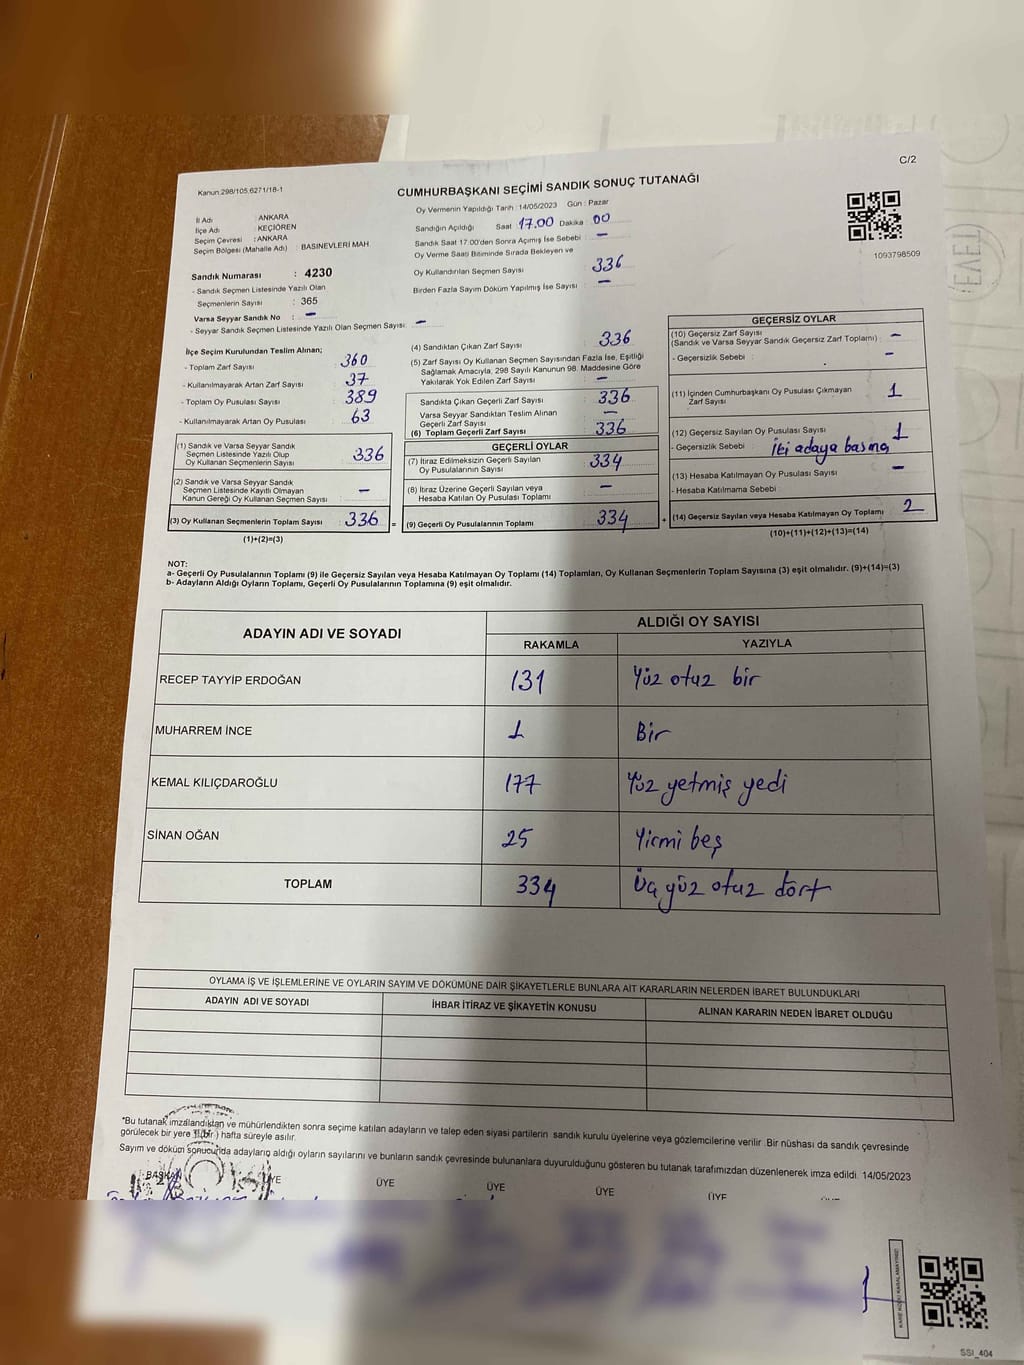 C/2
Kanun:298/105.6271/18-1
CUMHURBAŞKANI SEÇİMİ SANDIK SONUÇ TUTANAĞI
İl Adı : ANKARA
İlçe Adı : KEÇİÖREN
Seçim Çevresi : ANKARA
Seçim Bölgesi (Mahalle Adı) : BASINEVLERİ MAH
Sandık Numarası : 4230
- Sandık Seçmen Listesinde Yazılı Olan
Seçmenlerin Sayısı : 365
Varsa Seyyar Sandık No : -
- Seyyar Sandık Seçmen Listesinde Yazılı Olan Seçmen Sayısı: -
Oy Vermenin Yapıldığı Tarih : 14/05/2023 Gün : Pazar
Sandığın Açıldığı Saat 17.00 Dakika 00
Sandık Saat 17.00'den Sonra Açımış İse Sebebi : -
Oy Verme Saati Bitiminde Sırada Bekleyen ve
Oy Kullandırılan Seçmen Sayısı 336
Birden Fazla Sayım Döküm Yapılmış İse Sayısı : -
1093798509
İlçe Seçim Kurulundan Teslim Alınan;
- Toplam Zarf Sayısı : 360
- Kullanılmayarak Artan Zarf Sayısı : 37
- Toplam Oy Pusulası Sayısı : 389
- Kullanılmayarak Artan Oy Pusulası : 63
(1) Sandık ve Varsa Seyyar Sandık
Seçmen Listesinde Yazılı Olup
Oy Kullanan Seçmenlerin Sayısı 336
(2) Sandık ve Varsa Seyyar Sandık
Seçmen Listesinde Kayıtlı Olmayan
Kanun Gereği Oy Kullanan Seçmen Sayısı -
(3) Oy Kullanan Seçmenlerin Toplam Sayısı 336 =
(1)+(2)=(3)
(4) Sandıktan Çıkan Zarf Sayısı : 336
(5) Zarf Sayısı Oy Kullanan Seçmen Sayısından Fazla İse, Eşitliği
Sağlamak Amacıyla, 298 Sayılı Kanunun 98. Maddesine Göre
Yakılarak Yok Edilen Zarf Sayısı : -
Sandıkta Çıkan Geçerli Zarf Sayısı : 336
Varsa Seyyar Sandıktan Teslim Alınan
Geçerli Zarf Sayısı : -
(6) Toplam Geçerli Zarf Sayısı : 336
GEÇERLİ OYLAR
(7) İtiraz Edilmeksizin Geçerli Sayılan
Oy Pusulalarının Sayısı : 334
(8) İtiraz Üzerine Geçerli Sayılan veya
Hesaba Katılan Oy Pusulası Toplamı : -
(9) Geçerli Oy Pusulalarının Toplamı 334 +
GEÇERSİZ OYLAR
(10) Geçersiz Zarf Sayısı
(Sandık ve Varsa Seyyar Sandık Geçersiz Zarf Toplamı) : -
- Geçersizlik Sebebi : -
(11) İçinden Cumhurbaşkanı Oy Pusulası Çıkmayan
Zarf Sayısı 1
(12) Geçersiz Sayılan Oy Pusulası Sayısı : 1
- Geçersizlik Sebebi : İki adaya basma
(13) Hesaba Katılmayan Oy Pusulası Sayısı : -
- Hesaba Katılmama Sebebi :
(14) Geçersiz Sayılan veya Hesaba Katılmayan Oy Toplamı 2
(10)+(11)+(12)+(13)=(14)
NOT:
a- Geçerli Oy Pusulalarının Toplamı (9) ile Geçersiz Sayılan veya Hesaba Katılmayan Oy Toplamı (14) Toplamları, Oy Kullanan Seçmenlerin Toplam Sayısına (3) eşit olmalıdır. (9)+(14)=(3)
b- Adayların Aldığı Oyların Toplamı, Geçerli Oy Pusulalarının Toplamına (9) eşit olmalıdır.
ADAYIN ADI VE SOYADI
ALDIĞI OY SAYISI
RAKAMLA YAZIYLA
RECEP TAYYİP ERDOĞAN 131 Yüz otuz bir
MUHARREM İNCE 1 Bir
KEMAL KILIÇDAROĞLU 177 Yüz yetmiş yedi
SİNAN OĞAN 25 Yirmi beş
TOPLAM 334 Üç yüz otuz dört
OYLAMA İŞ VE İŞLEMLERİNE VE OYLARIN SAYIM VE DÖKÜMÜNE DAİR ŞİKAYETLERLE BUNLARA AİT KARARLARIN NELERDEN İBARET BULUNDUKLARI
ADAYIN ADI VE SOYADI İHBAR İTİRAZ VE ŞİKAYETİN KONUSU ALINAN KARARIN NEDEN İBARET OLDUĞU
*Bu tutanak imzalandıktan ve mühürlendikten sonra seçime katılan adayların ve talep eden siyasi partilerin sandık kurulu üyelerine veya gözlemcilerine verilir. Bir nüshası da sandık çevresinde
görülecek bir yere 1 (bir) hafta süreyle asılır.
Sayım ve döküm sonucunda adayların aldığı oyların sayılarını ve bunların sandık çevresinde bulunanlara duyurulduğunu gösteren bu tutanak tarafımızdan düzenlenerek imza edildi. 14/05/2023
BAŞKAN ÜYE ÜYE ÜYE ÜYE ÜYE
SSI_404